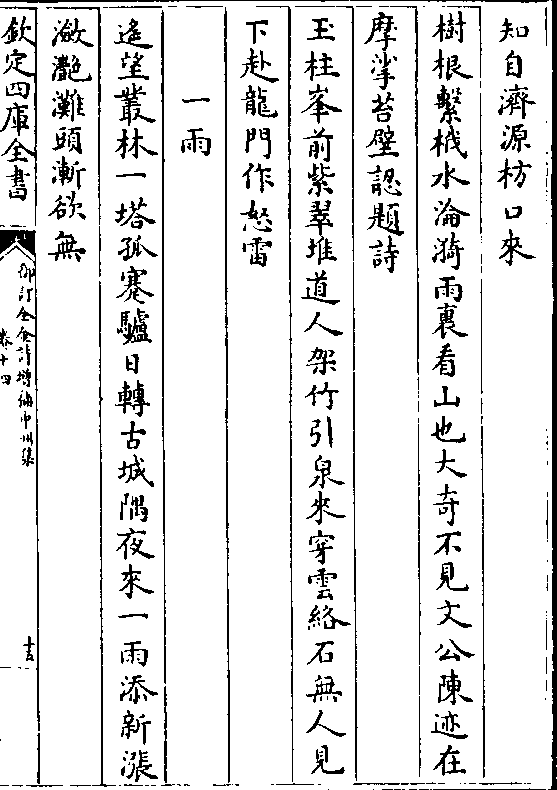 知自濟源枋口來
樹根繫栰水淪漪雨裏看山也大奇不見文公陳迹在
摩挲苔壁認題詩
玉柱峯前紫翠堆道人架竹引泉來穿雲絡石無人見
下赴龍門作怒雷
一雨
遙望叢林一塔孤蹇驢日轉古城隅夜來一雨添新漲
瀲灩灘頭漸欲無
欽定四庫全書
御訂全金詩增補中州集
卷十四